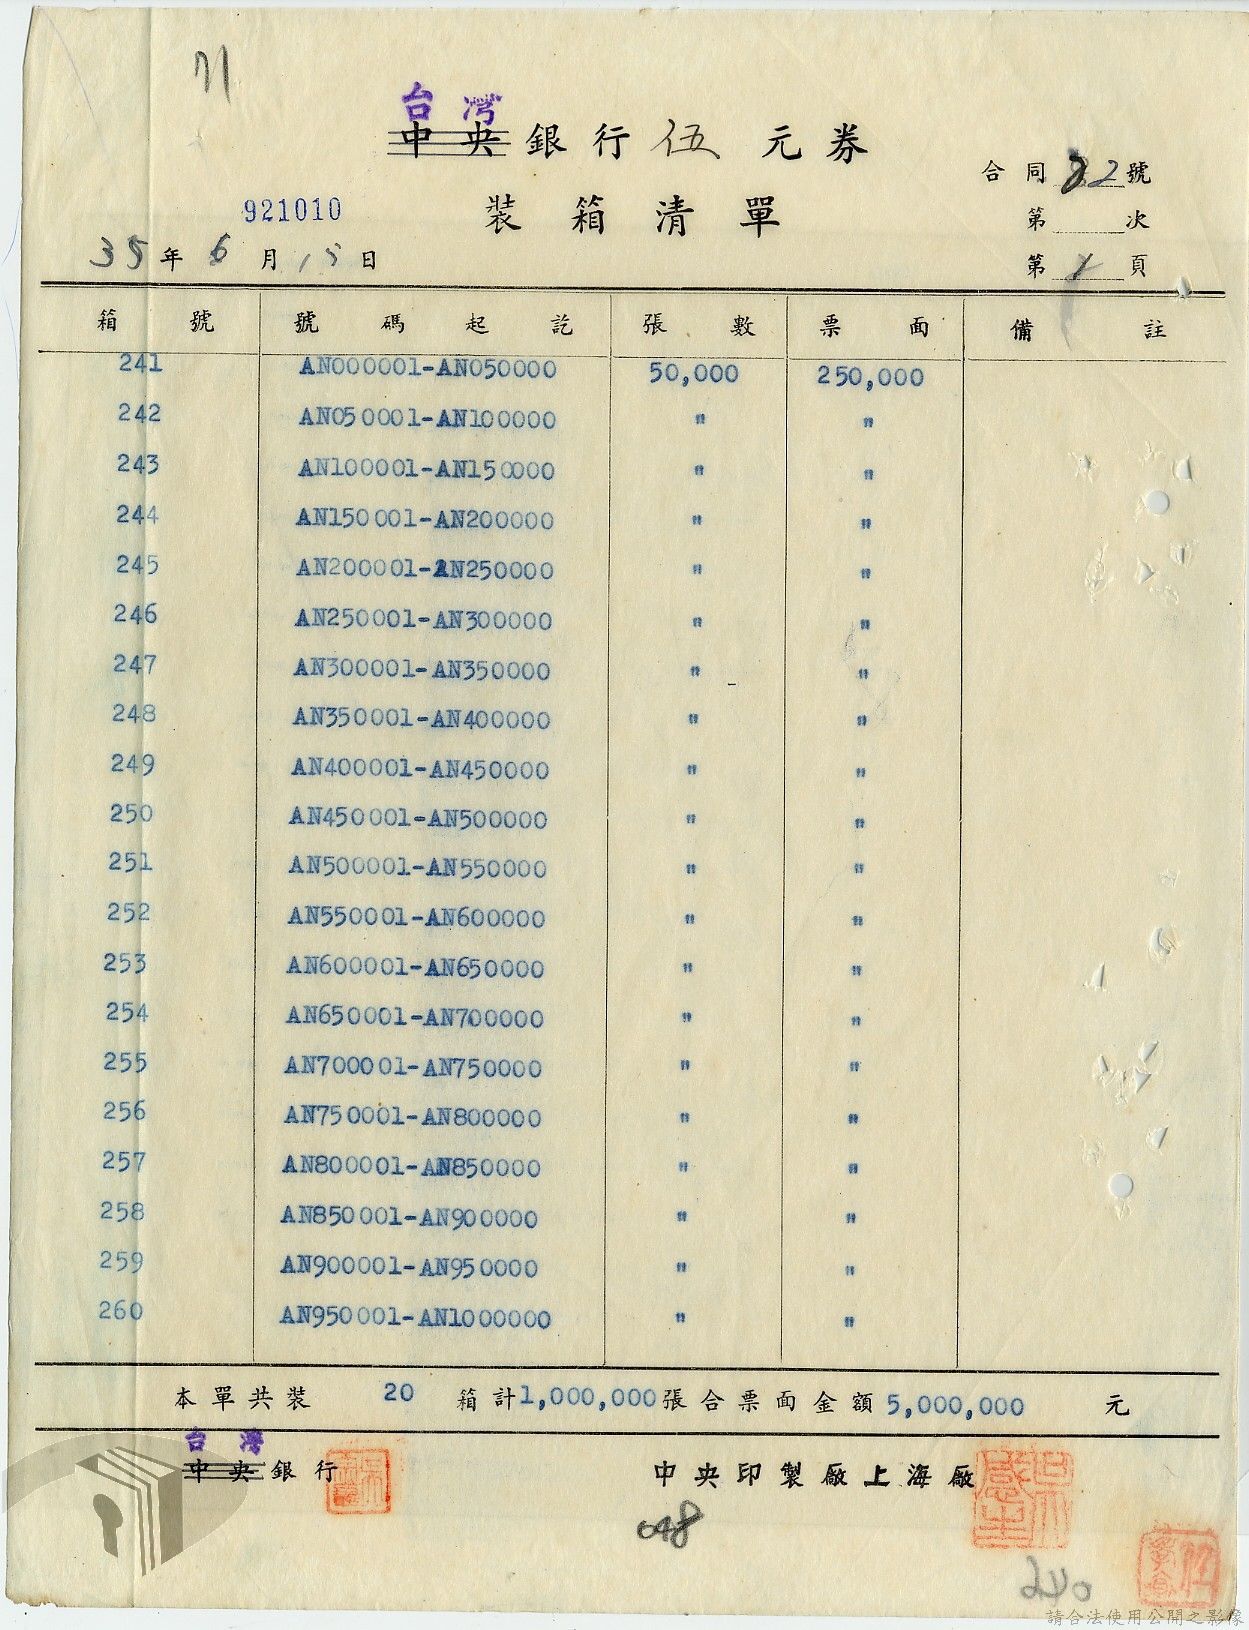 71
台灣
中央銀行伍元券
合同82號
921010
裝箱清單
第 次
35年6月15日
第1頁
箱號 號碼起訖 張數 票面 備註
241 AN000001-AN050000 50,000 250,000
242 AN050001-AN100000 " "
243 AN100001-AN150000 " "
244 AN150001-AN200000 " "
245 AN200001-AN250000 " "
246 AN250001-AN300000 " "
247 AN300001-AN350000 " "
248 AN350001-AN400000 " "
249 AN400001-AN450000 " "
250 AN450001-AN500000 " "
251 AN500001-AN550000 " "
252 AN550001-AN600000 " "
253 AN600001-AN650000 " "
254 AN650001-AN700000 " "
255 AN700001-AN750000 " "
256 AN750001-AN800000 " "
257 AN800001-AN850000 " "
258 AN850001-AN900000 " "
259 AN900001-AN950000 " "
260 AN950001-AN1000000 " "
本單共裝 20 箱計1,000,000張合票面金額5,000,000 元
台灣
中央銀行 中央印製廠上海廠
048
240
請合法使用公開之影像